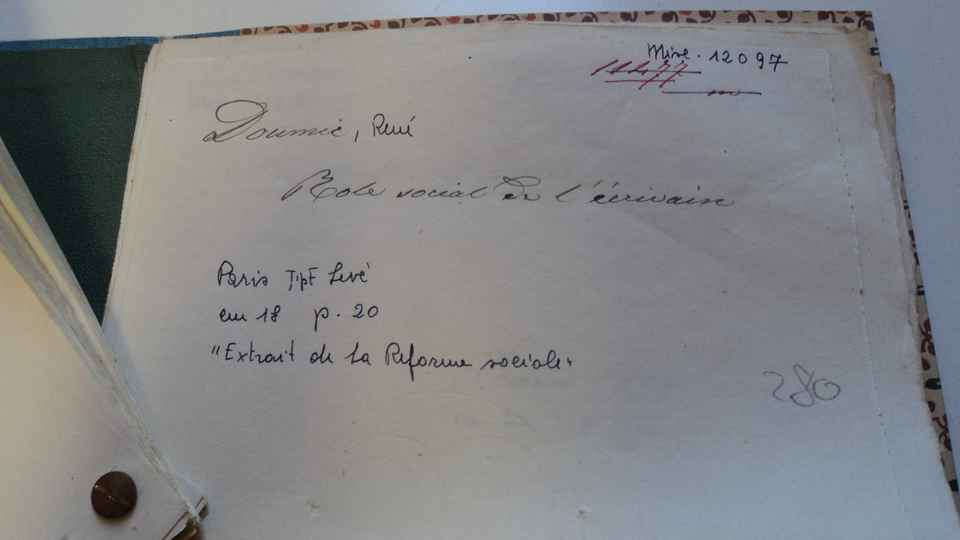 Misc. 12097
Doumic, René
Role social de l'écrivain
Paris Tipf Levé
cm 18 p. 20
"Extrait de la Reforme sociale"
280